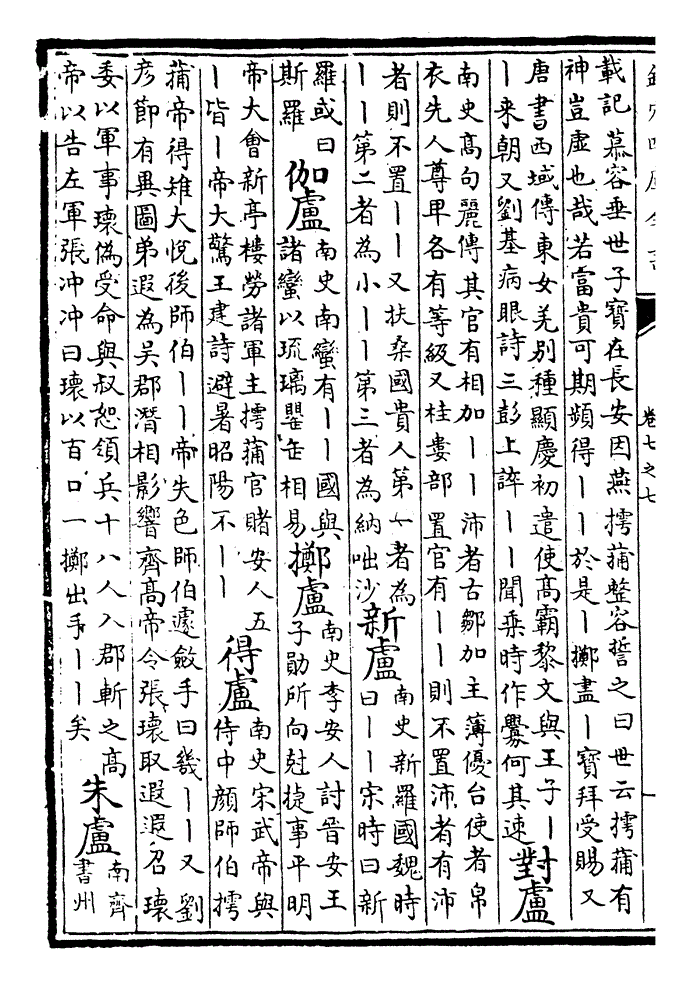 欽定四庫全書
卷七之七
載記慕容垂世子寶在長安因燕摴蒱整容誓之曰世云摴蒱有
神豈虛也哉若富貴可期頻得丨丨於是丨擲盡丨寶拜受賜又
唐書西域傳東女羌別種顯慶初遣使髙霸黎文與王子丨
丨來朝又劉基病眼詩三彭上誶丨丨聞乘時作釁何其速
對盧
南史髙句麗傳其官有相加丨丨沛者古鄒加主簿優台使者帛
衣先人尊卑各有等級又桂婁部置官有丨丨則不置沛者有沛
者則不置丨丨又扶桑國貴人第一者為
丨丨第二者為小丨丨第三者為納咄沙
新盧
南史新羅國魏時
曰丨丨宋時曰新
羅或曰
斯羅
伽盧
南史南蠻有丨丨國與
諸蠻以琉璃罌缶相易
擲盧
南史李安人討晉安王
子勛所向尅捷事平明
帝大會新亭樓勞諸軍主摴蒱官賭安人五
丨皆丨帝大驚王建詩避暑昭陽不丨丨
得盧
南史宋武帝與
侍中顔師伯摴
蒲帝得雉大悅後師伯丨丨帝失色師伯遽斂手曰幾丨丨又劉
彦節有異圖弟遐為吳郡潛相影響齊髙帝令張瓌取遐遐召瓌
委以軍事瓌偽受命與叔恕領兵十八人入郡斬之髙
帝以告左軍張冲冲曰瓌以百口一擲出手丨丨矣
朱盧
南齊
書州